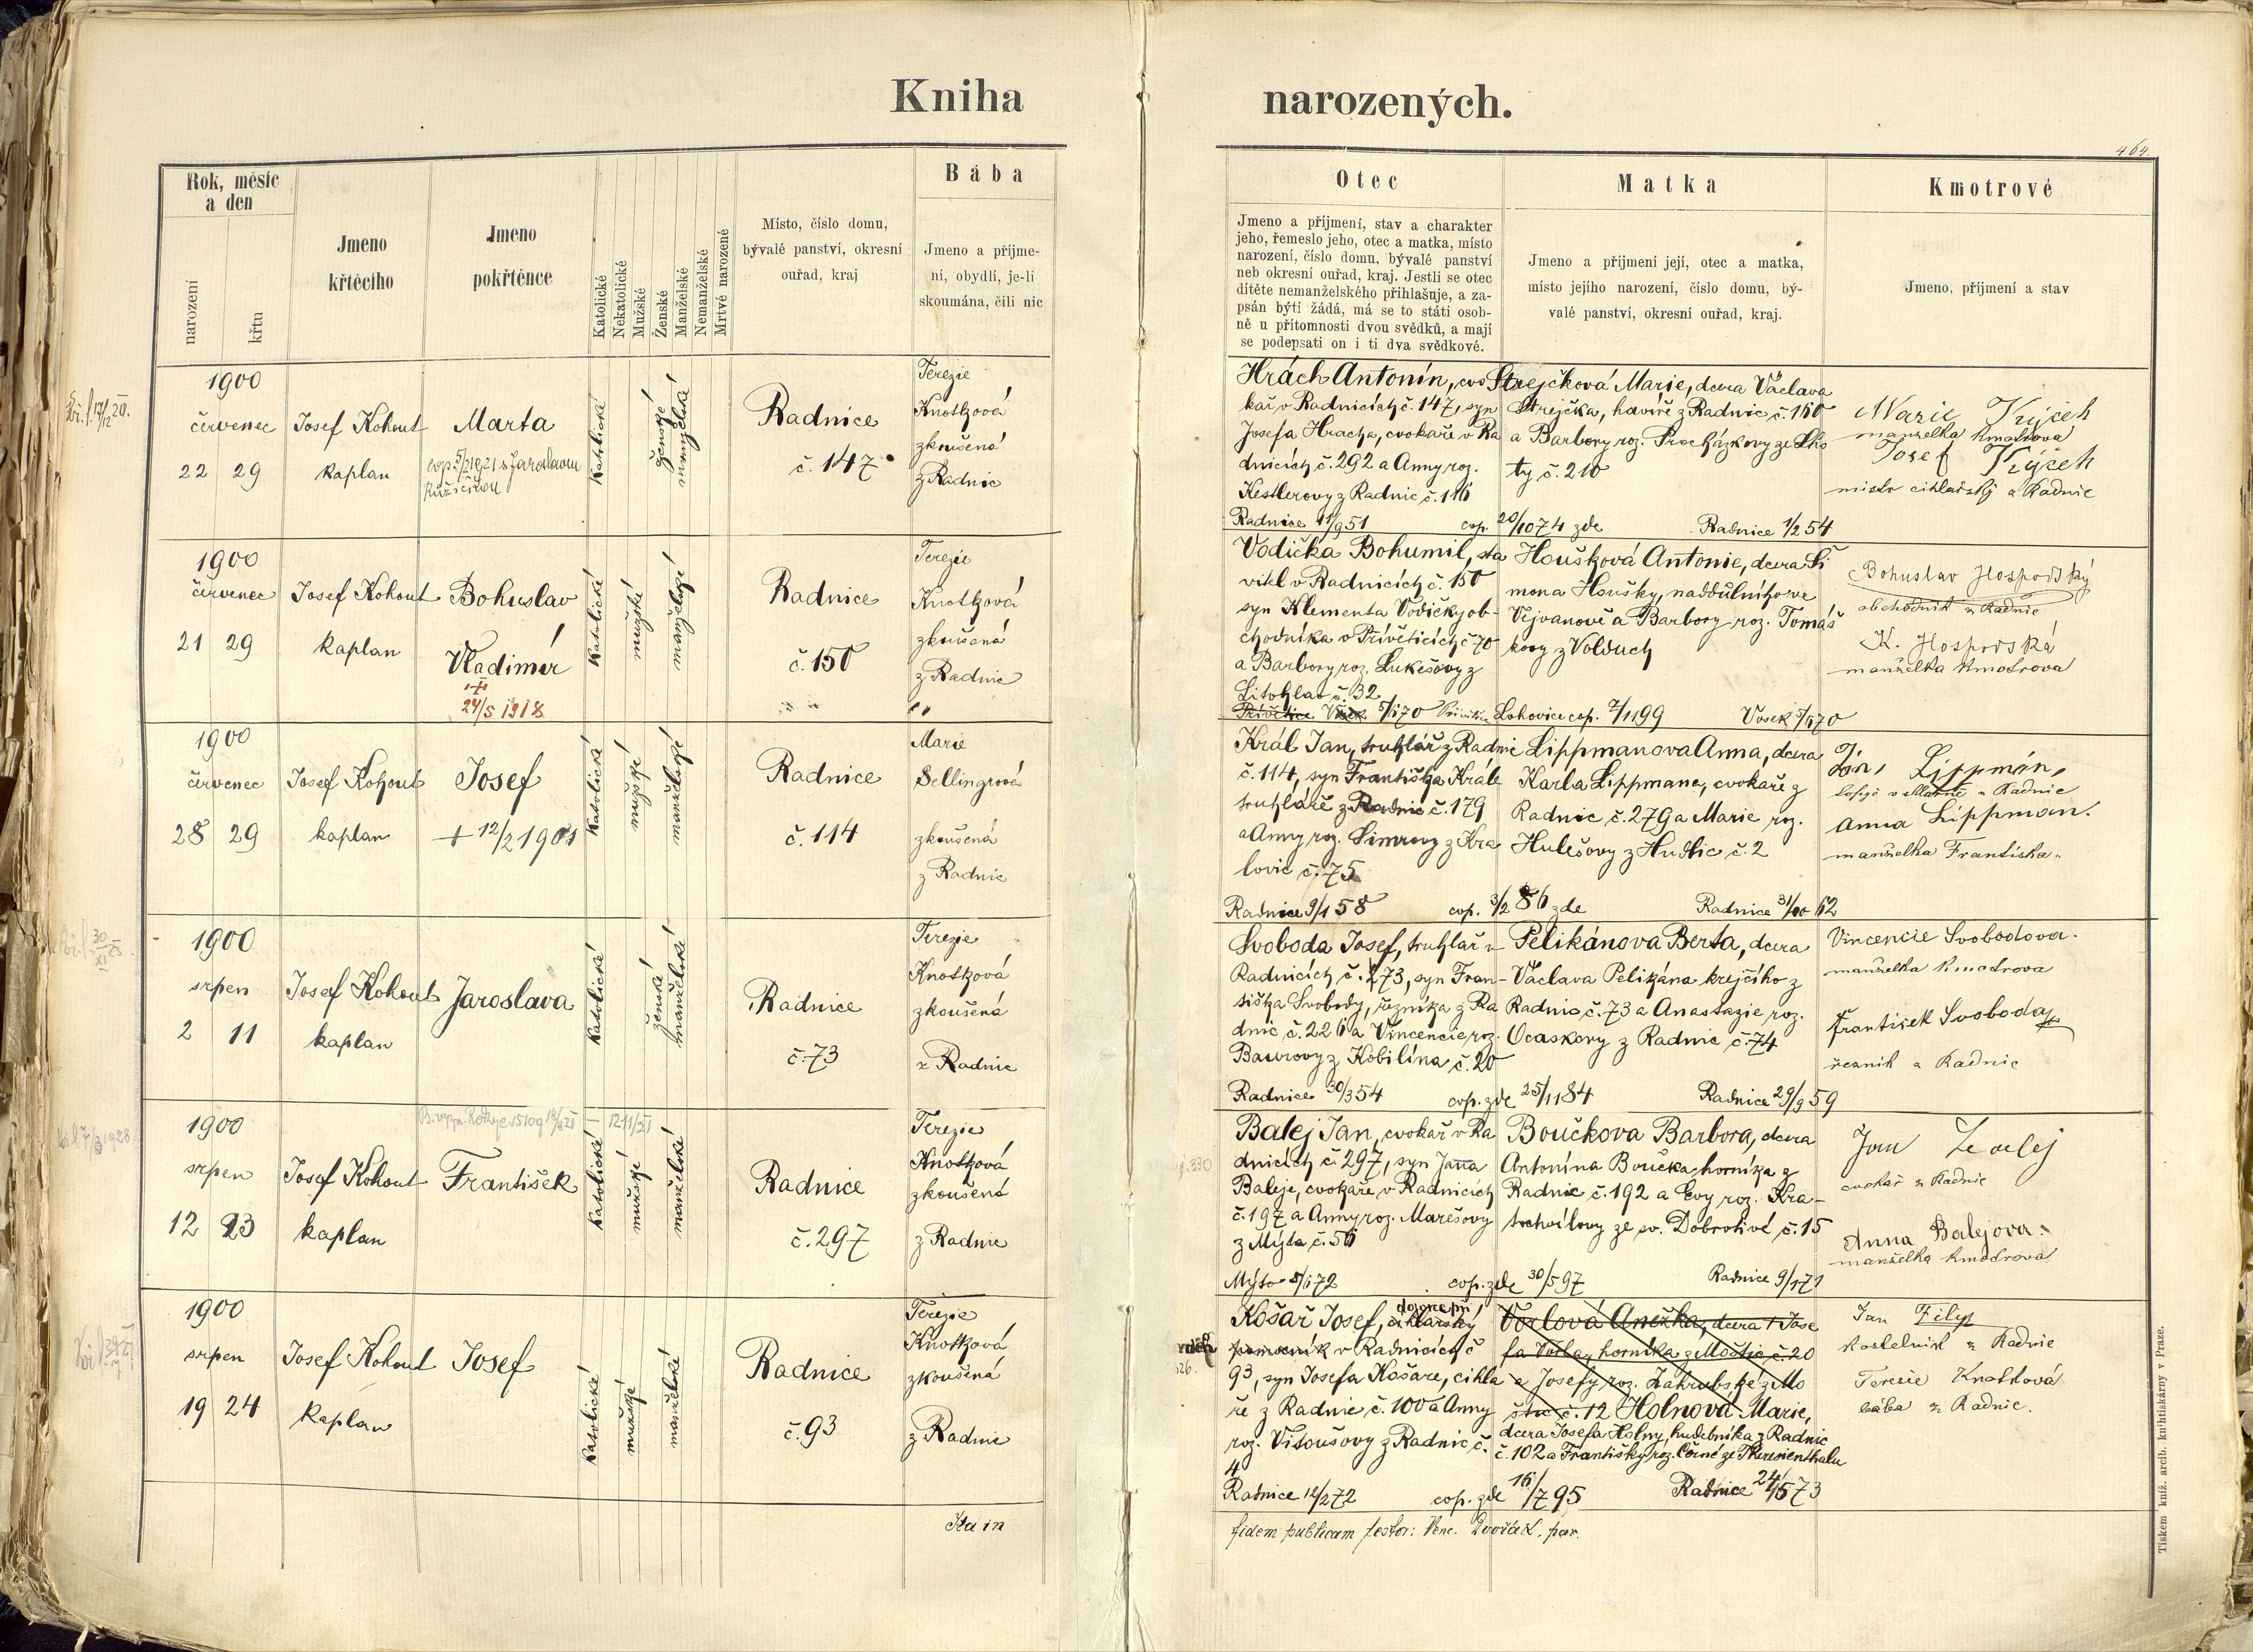 Kniha narozených.
464.
Rok, měsíc a den
narození
křtu
Jmeno křtěcího
Jmeno pokřtěnce
Katolické
Nekatolické
Mužské
Ženské
Manželské
Nemanželské
Mrtvě narozené
Místo, číslo domu,
bývalé panství, okresní
ouřad, kraj
Bába
Jmeno a příjme-
ní, obydlí, je-li
skoumána, čili nic
Otec
Jmeno a příjmení, stav a charakter
jeho, řemeslo jeho, otec a matka, místo
narození, číslo domu, bývalé panství
neb okresní ouřad, kraj. Jestli se otec
dítěte nemanželského přihlašuje, a za-
psán býti žádá, má se to státi osob-
ně u přítomnosti dvou svědků, a mají
se podepsati on i ti dva svědkové.
Matka
Jmeno a přijmení její, otec a matka,
místo jejího narození, číslo domu, bý-
valé panství, okresní ouřad, kraj.
Kmotrové
Jmeno, příjmení a stav
1900
červenec
22 29
Josef Kohout
kaplan
Marta
cop. 5/2 1921 s Jaroslavem
Růžičkou
katolické
ženské
manželské
Radnice
č. 147
Terezie
Knotková
zkoušená
z Radnic
Hrách Antonín, cvo
kař v Radnicích č. 147, syn
Josefa Hracha, cvokaře v Ra
dnicích č. 292 a Anny roz.
Kestlerovy z Radnic č. 116
Radnice 11/9 51
cop. 20/10 74 zde
Strejčková Marie, dcera Václava
Strejčka, havíře z Radnic č. 160
a Barbory roz. Procházkovy ze Lho
ty č. 210
Radnice 1/2 54
Marie
manželka kmotrova
Josef
mistr cihlařský z Radnic
1900
červenec
21 29
Josef Kohout
kaplan
Bohuslav
Vladimír
24/5 1918
katolické
mužské
manželské
Radnice
č. 150
Terezie
Knotková
zkoušená
z Radnic
Vodička Bohumil, sta
vitel v Radnicích č. 150
syn Klementa Vodičky ob-
chodníka v Přívěticích č 70
a Barbory roz. Lukešovy z
Litohlav č. 32
5/1 70
Lohovice cop. 7/11 99
Houšková Antonie, dcera Ši
mona Houšky, naddůlního ve
Vejvanově a Barbory roz. Tomáš
kovy z Volduch
Vosek 5/1 70
Bohuslav Hospodský
obchodník z Radnic
K. Hospodská
manželka kmotrova
1900
červenec
28 29
Josef Kohout
kaplan
Josef
+ 12/2 1901
katolické
mužské
manželské
Radnice
č. 114
Marie
Sellingrová
zkoušená
z Radnic
Král Jan, truhlář z Radnic
č. 114, syn Františka Krále
truhláře z Radnic č. 179
a Anny roz. Šimrovy z Kra
lovic č. 75
Radnice 9/1 58
cop. 3/2 86 zde
Lippmanova Anna, dcera
Karla Lippmana, cvokaře z
Radnic č. 279 a Marie roz.
Hulešovy z Hudlic č. 2
Radnice 31/10 62
Jan Lippman,
Anna Lippman.
manželka Františka
1900
srpen
2 11
Josef Kohout
kaplan
Jaroslava
katolické
ženské
manželské
Radnice
č. 73
Terezie
Knotková
zkoušená
z Radnic
Svoboda Josef, truhlář v
Radnicích č. 273, syn Fran-
tiška Svobody, řezníka z Ra
dnic č. 226 a Vincencie roz.
Baurovy z Kobilína č. 20
Radnice 30/3 54
cop. zde 25/11 84
Pelikánova Berta, dcera
Václava Pelikána krejčího z
Radnic č. 73 a Anastazie roz.
Ocaskovy z Radnic č. 74
Radnice 29/9 59
Vincencie Svobodova.
manželka kmotrova
František Svoboda
řezník z Radnic
1900
srpen
12 23
Josef Kohout
kaplan
František
katolické
mužské
manželské
Radnice
č. 297
Terezie
Knotková
zkoušená
z Radnic
Balej Jan, cvokař v Ra
dnicích č. 297, syn Jana
Baleje, cvokaře v Radnicích
č. 197 a Anny roz. Marešovy
z Mýta č. 56
Mýto 5/1 72
cop. zde 30/5 97
Boučkova Barbora, dcera
Antonína Boučka, horníka z
Radnic č. 192 a Evy roz. Kra-
tochvílovy ze sv. Dobrotivé č. 15
Radnice 9/1 71
Jan
cvokař z Radnic
Anna Balejova.
manželka kmotrova
1900
srpen
19 24
Josef Kohout
kaplan
Josef
katolické
mužské
manželské
Radnice
č. 93
Terezie
Knotková
zkoušená
z Radnic
Košař Josef, cihlařský
pomocník v Radnicích č
93, syn Josefa Košaře, cihla
ře z Radnic č. 100 a Anny
roz. Vitoušovy z Radnic č.
4
Radnice 12/2 72
cop. zde 16/7 95
Vorlová Anežka, dcera † Jose
fa Vorla, horníka z Moštic č. 20
a Josefy roz. Zahrubské z Mo
štic č. 12 Holnová Marie,
dcera Josefa Holny, hudebníka z Radnic
č. 102 a Františky roz. Černé ze Theresienthalu
Radnice 24/5 73
Jan Filip
kostelník z Radnic
Terezie Knotková
bába z Radnic.
fidem publicam testor: Venc. Dvořák. par.
Tiskem kníž. arcib. knihtiskárny v Praze.